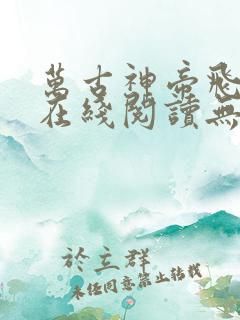 萬古神帝飛
在綫閱讀無
於立群
未经同意禁止转载